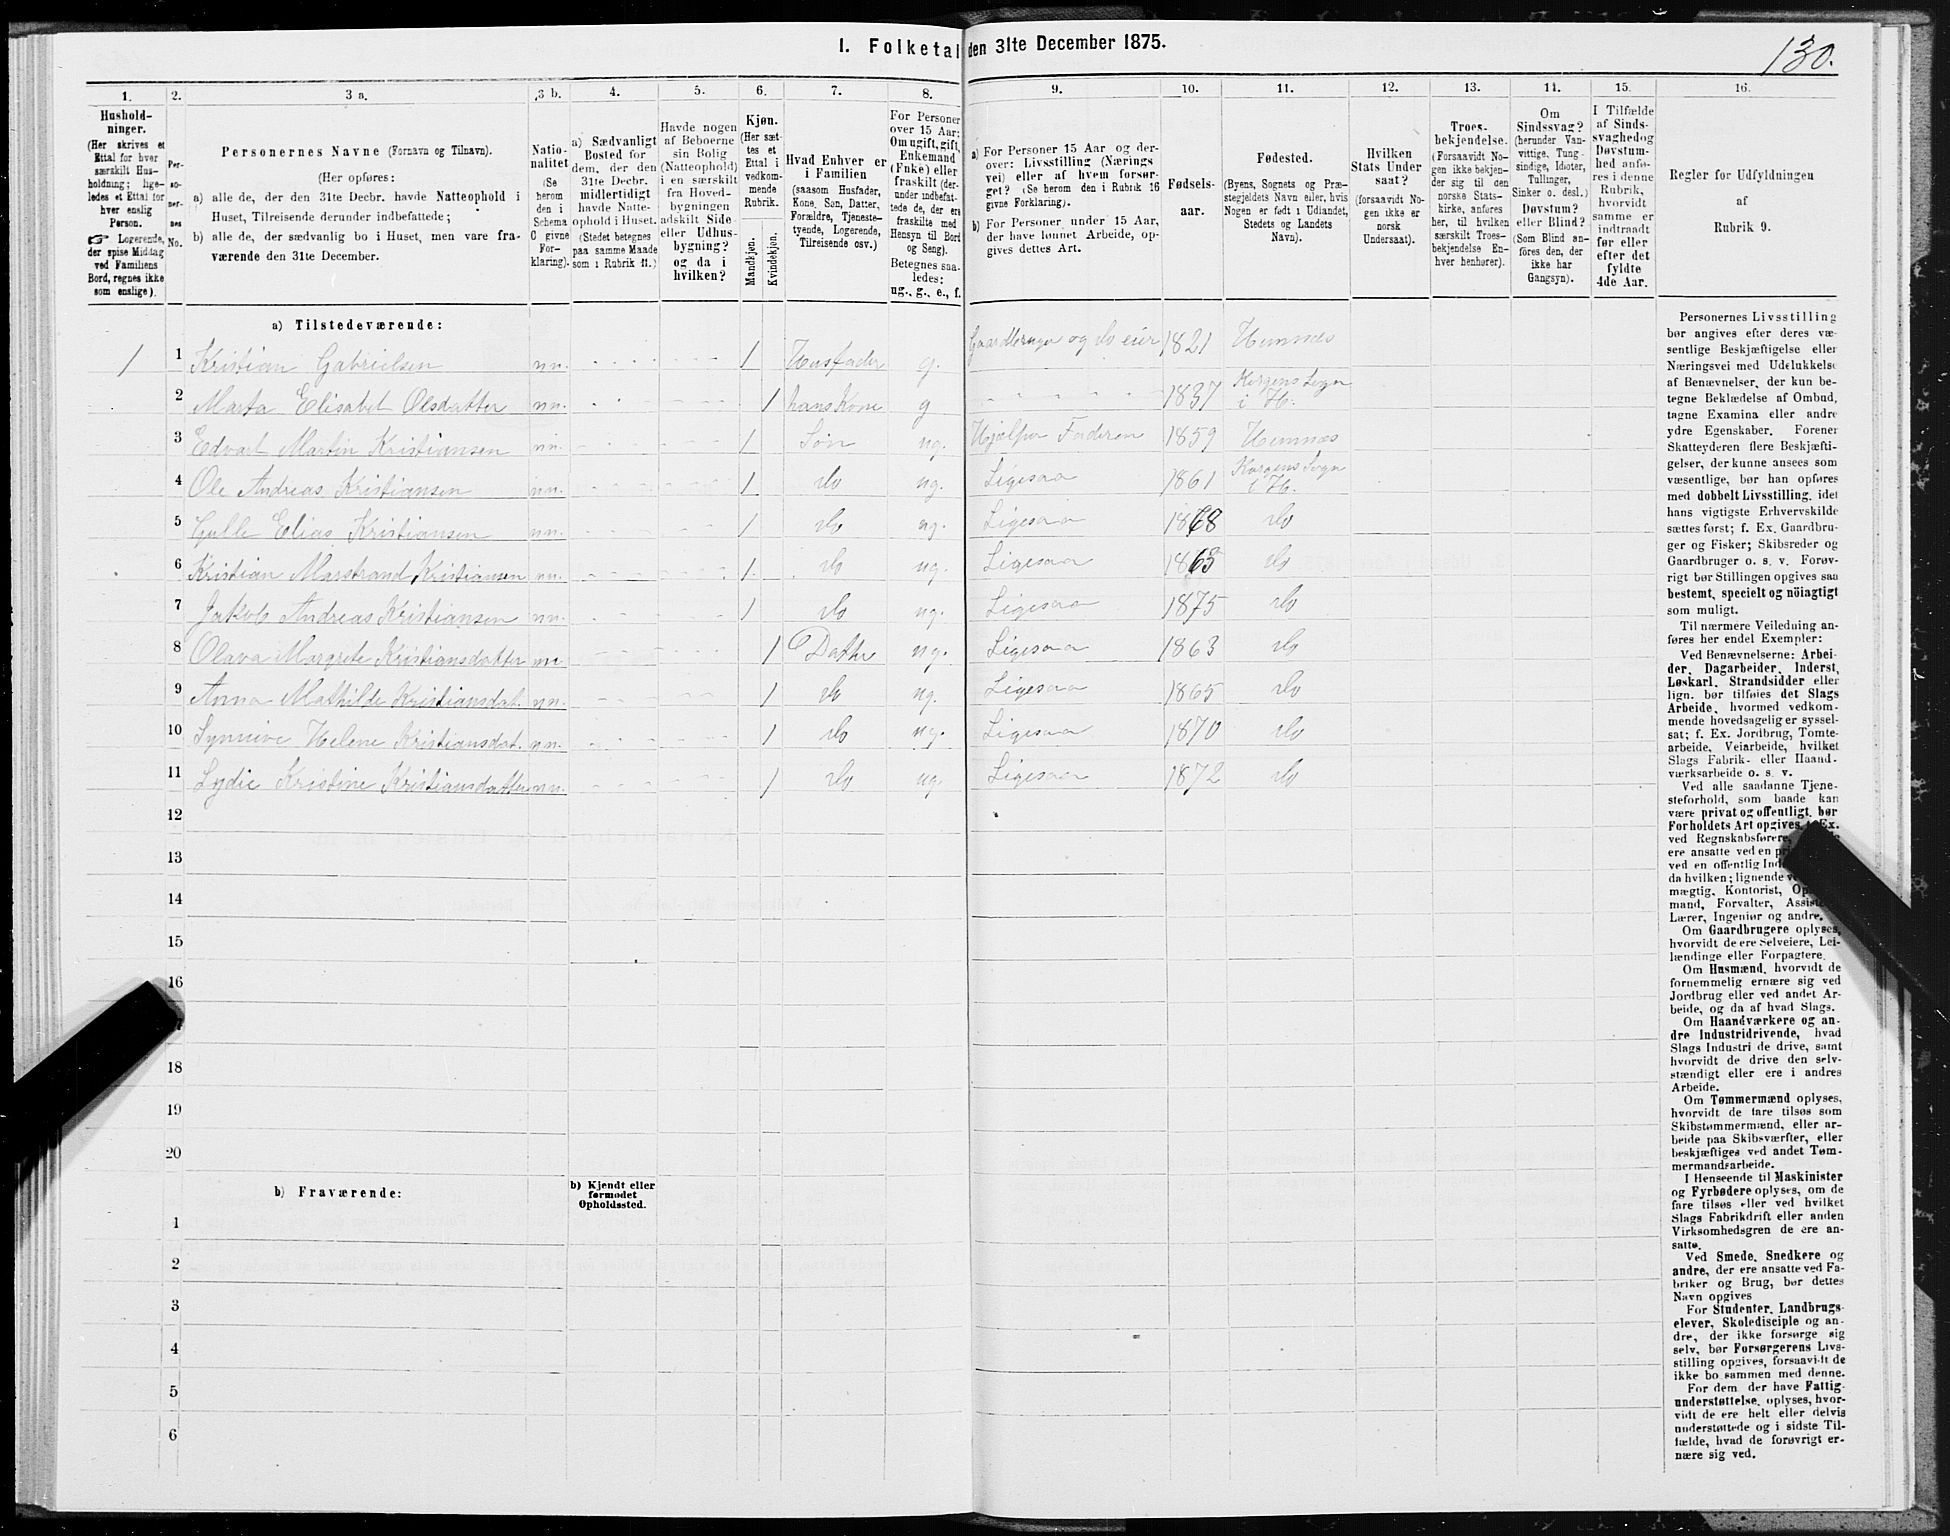 I. Folketal den 31te December 1875.
130.
1. 2. 3 a. 3 b. 4. 5. 6. 7. 8. 9. 10. 11. 12. 13. 14. 15. 16.
Hushold-
ninger.
(Her skrives et
Ettal for hver
særskilt Hus-
holdning; lige-
ledes et Ettal for
hver enslig
Person.
☞ Logerende,
der spise Middag
ved Familiens
Bord, regnes ikke
som enslige).
Per-
so-
ner-
nes
No.
Personernes Navne (Fornavn og Tilnavn).
(Her opføres:
a) alle de, der den 31te Decbr. havde Natteophold i
Huset, Tilreisende derunder indbefattede;
b) alle de, der sædvanlig bo i Huset, men vare fra-
værende den 31te December.
Natio-
nalitet
(Se
herom
den i
Schema
O givne
For-
klaring).
a) Sædvanligt
Bosted for
dem, der den
31te Decbr.
midlertidigt
havde Natte-
ophold i Huset.
(Stedet betegnes
paa samme Maade
som i Rubrik 11.)
Havde nogen
af Beboerne
sin Bolig
(Natteophold)
i en særskilt
fra Hoved-
bygningen
adskilt Side-
eller Udhus-
bygning?
og da i
hvilken?
Kjøn.
(Her sæt-
tes et
Ettal i
vedkom-
mende
Rubrik.
Mandkjøn.
Kvindekjøn.
Hvad Enhver er
i Familien
(saasom Husfader,
Kone, Søn, Datter,
Forældre, Tjeneste-
tyende, Logerende,
Tilreisende osv.)
For Personer
over 15 Aar:
Om ugift, gift,
Enkemand
(Enke) eller
fraskilt (der-
under indbefat-
tede de, der ere
fraskilte med
Hensyn til Bord
og Seng).
Betegnes saa-
ledes:
ug., g., e., f.
a) For Personer 15 Aar og der-
over: Livsstilling (Nærings
vei) eller af hvem forsør-
get? (Se herom den i Rubrik 16
givne Forklaring).
b) For Personer under 15 Aar,
der have lønnet Arbeide, op-
gives dettes Art.
Fødsels-
aar.
Fødested.
(Byens, Sognets og Præ-
stegjeldets Navn eller, hvis
Nogen er født i Udlandet,
Stedets og Landets
Navn).
Hvilken
Stats Under
saat?
(forsaavidt No-
gen ikke er
norsk
Undersaat).
Troes-
bekjendelse.
(Forsaavidt No-
gen ikke bekjen-
der sig til den
norske Stats-
kirke, anføres
her, til hvilken
særskilt Troes-
bekjendelse En-
hver henhører).
Om
Sindssvag?
(herunder Van-
vittige, Tung-
sindige, Idioter,
Tullinger,
Sinker o. desl.)
Døvstum?
eller Blind?
(Som Blind an-
føres den, der
ikke har
Gangsyn).
I Tilfælde
af Sinds-
svaghed og
Døvstum-
hed anfø-
res i denne
Rubrik,
hvorvidt
samme er
indtraadt
før eller
efter det
fyldte
4de Aar.
Regler for Udfyldningen
af
Rubrik 9.
a) Tilstedeværende:
1 1 Kristian Gabrielsen nn. 1 Husfader g. Gaardbruger og do eier 1821 Hemnes
2 Marta Elisabet Olsdatter nn. 1 hans Kone g 1837 Korgens Sogn i H.
3 Edvart Martin Kristiansen nn. 1 Søn ug. Hjælper Faderen 1859 Hemnes
4 Ole Andreas Kristiansen nn. 1 do ug. Ligesaa 1861 Korgens Sogn i H.
5 Elias Kristiansen nn. 1 do ug. Ligesaa 1868 do
6 Kristian Marstrand Kristiansen nn. 1 do ug. Ligesaa do
7 Jakob Andreas Kristiansen nn. 1 do ug. Ligesaa 1875 do
8 Olava Margrete Kristiansdatter nn. 1 Datter ug. Ligesaa 1863 do
9 Anna Mathilde Kristiansdat. nn. 1 do ug. Ligesaa 1865 do
10 Synnive Helene Kristiansdat. nn. 1 do ug. Ligesaa 1870 do
11 Lydie Kristine Kristiansdatter nn. 1 do ug. Ligesaa 1872 do
12
13
14
15
16
18
19
20
b) Fraværende:
b) Kjendt eller
formodet
Opholdssted.
1
2
3
4
5
6
Personernes Livsstilling
bør angives efter deres væ-
sentlige Beskjæftigelse eller
Næringsvei med Udelukkelse
af Benævnelser, der kun be-
tegne Beklædelse af Ombud,
tagne Examina eller andre
ydre Egenskaber. Forener
Skatteyderen flere Beskjæfti-
gelser, der kunne ansees som
væsentlige, bør han opføres
med dobbelt Livsstilling, idet
hans vigtigste Erhvervskilde
sættes først; f. Ex. Gaardbru-
ger og Fisker; Skibsreder og
Gaardbruger o. s. v. Forøv-
rigt bør Stillingen opgives saa
bestemt, specielt og nöiagtigt
som muligt.
Til nærmere Veiledning an-
føres her endel Exempler:
Ved Benævnelserne: Arbei-
der, Dagarbeider, Inderst,
Løskarl, Strandsidder eller
lign. bør tilføies det Slags
Arbeide, hvormed vedkom-
mende hovedsagelig er syssel-
sat; f. Ex. Jordbrug, Tomte-
arbeide, Veiarbeide, hvilket
Slags Fabrik- eller Haand-
værksarbeide o. s. v.
Ved alle saadanne Tjene-
steforhold, som baade kan
være privat og offentligt, bør
Forholdets Art opgives, f. Ex.
ved Regnskabsførere,
ere ansatte ved en
ved en offentlig
da hvilken; lignende
mægtig, Kontorist,
mand, Forvalter,
Lærer, Ingeniør og andre.
Om Gaardbrugere oplyses,
hvorvidt de ere Selveiere, Lei-
lændinge eller Forpagtere.
Om Husmænd, hvorvidt de
fornemmelig ernære sig ved
Jordbrug eller ved andet Ar-
beide, og da af hvad Slags.
Om Haandværkere og an-
dre Industridrivende, hvad
Slags Industri de drive, samt
hvorvidt de drive den selv-
stændigt eller ere i andres
Arbeide.
Om Tømmermænd oplyses,
hvorvidt de fare tilsøs som
Skibstømmermænd, eller ar-
beide paa Skibsværfter, eller
beskjæftiges ved andet Tøm-
mermandsarbeide.
I Henseende til Maskinister
og Fyrbødere oplyses, om de
fare tilsøs eller ved hvilket
Slags Fabrikdrift eller anden
Virksomhedsgren de ere an-
satte.
Ved Smede, Snedkere og
andre, der ere ansatte ved Fa-
briker og Brug, bør dettes
Navn opgives
For Studenter, Landbrugs-
elever, Skoledisciple og an-
dre, der ikke forsørge sig
selv, bør Forsørgerens Livs-
stilling opgives, forsaavidt de
ikke bo sammen med denne.
For dem, der have Fattig-
understøttelse, oplyses, hvor-
vidt de ere helt eller delvis
understøttede og i sidste Til-
fælde, hvad de forøvrigt er-
nære sig ved.